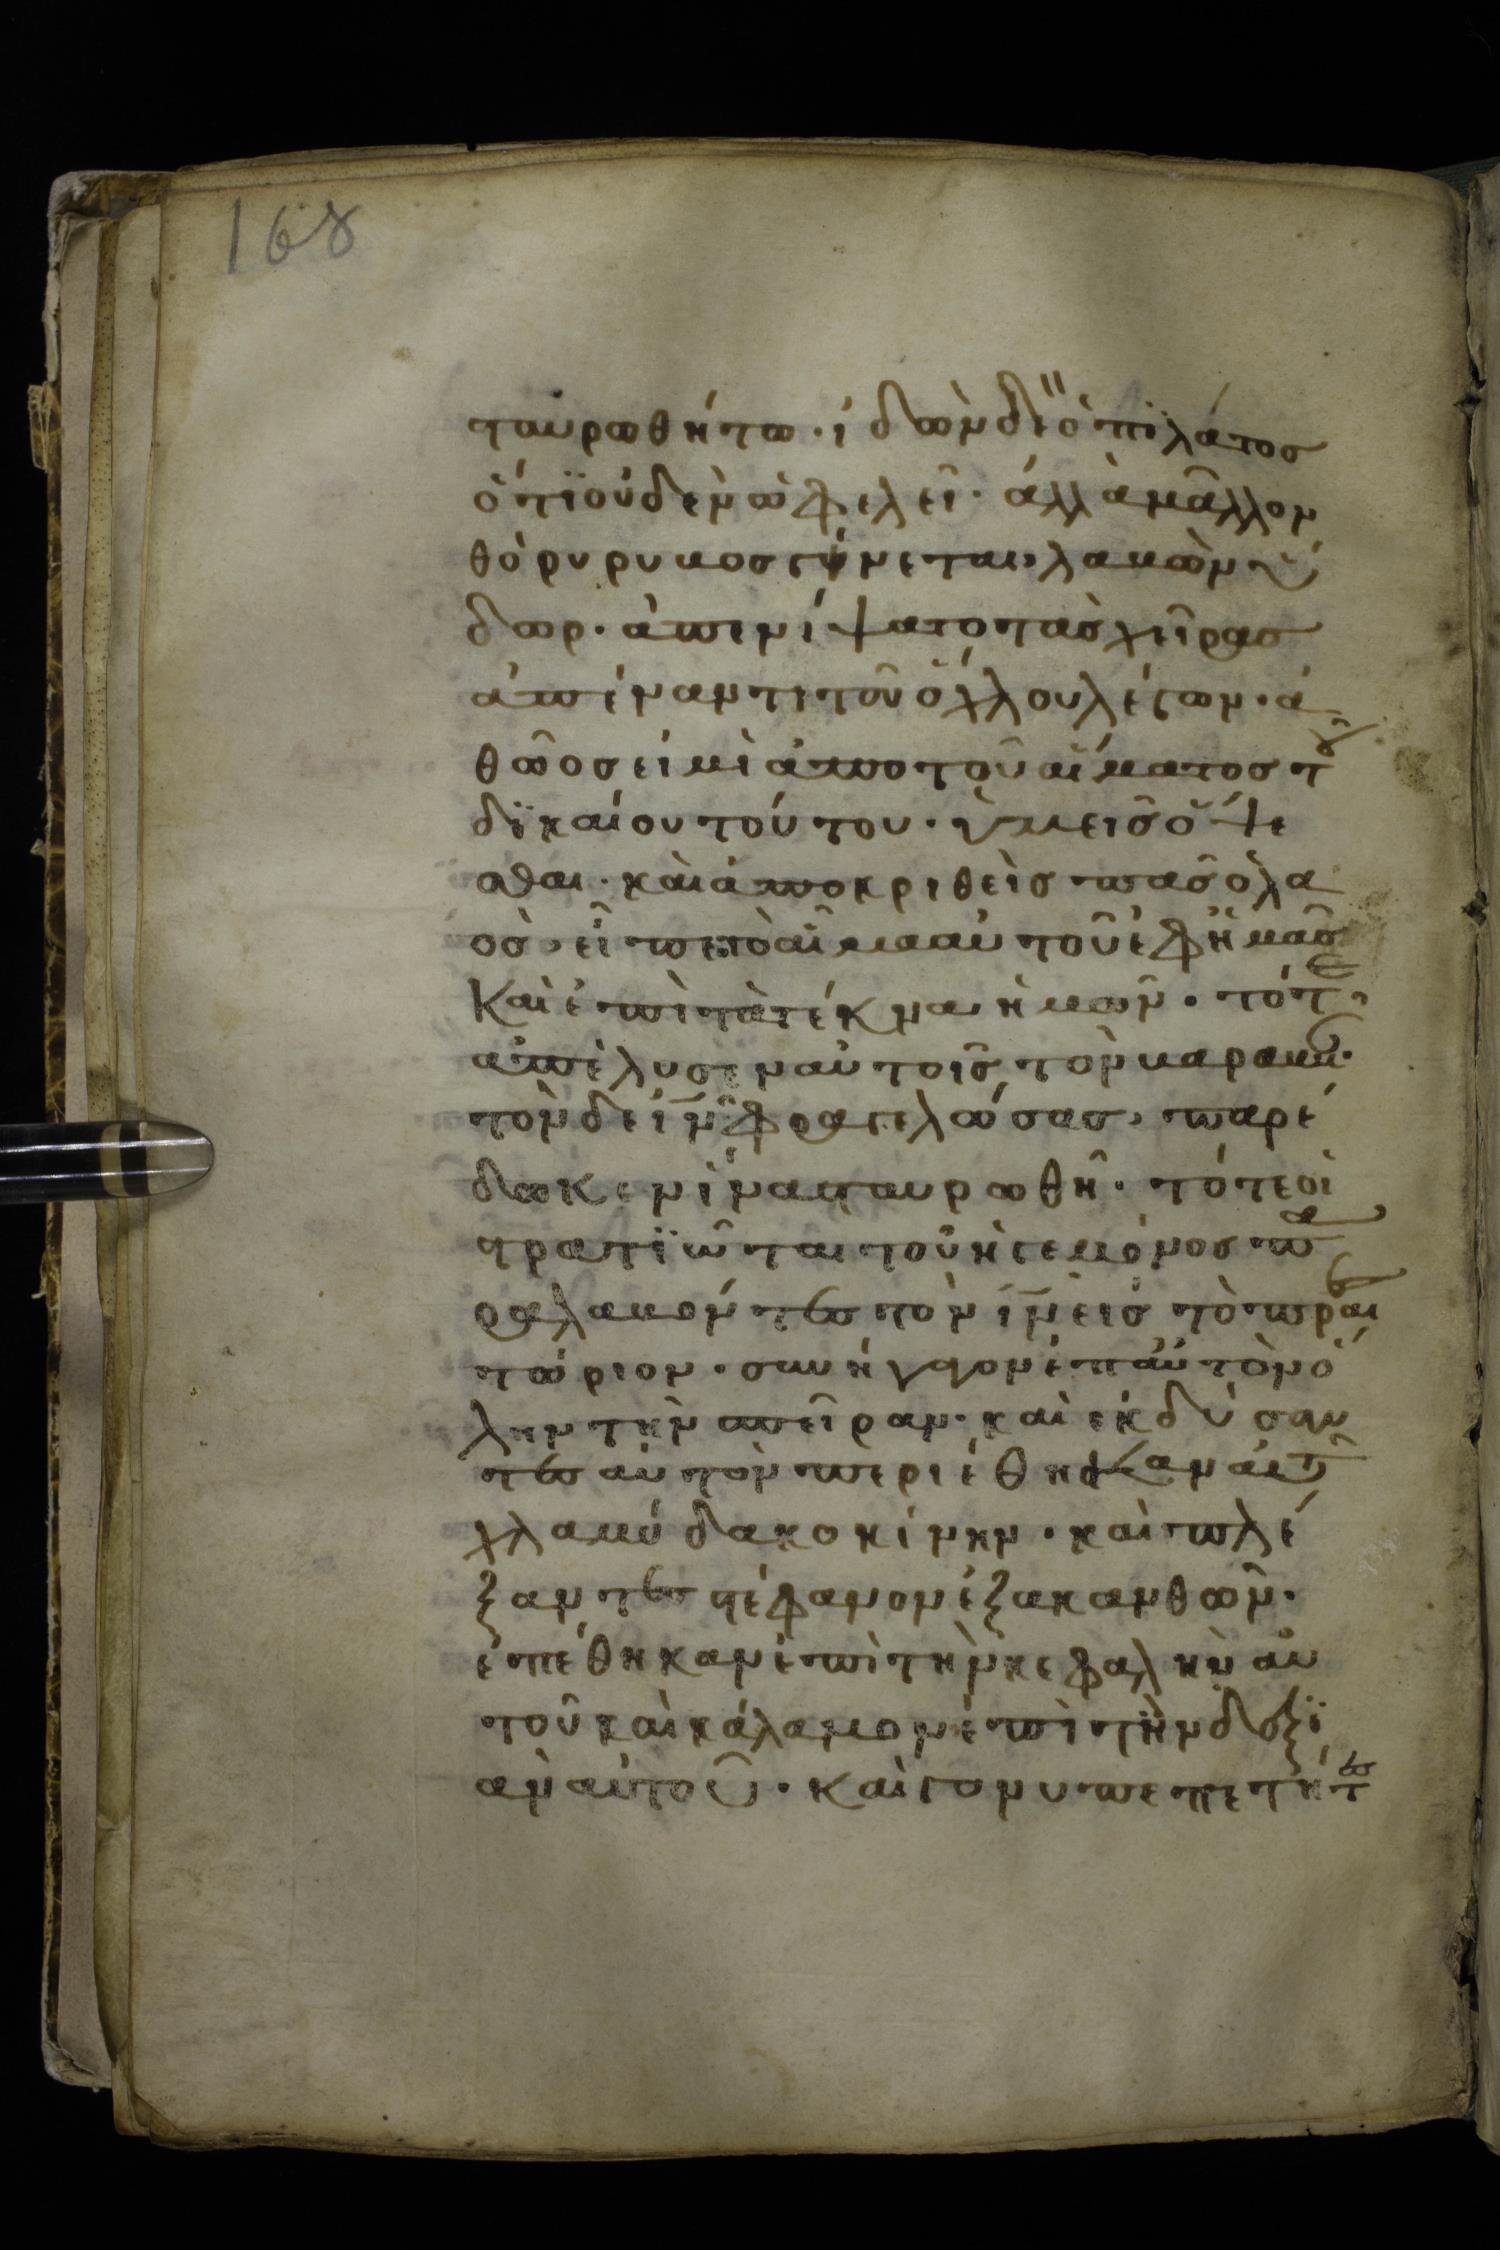 168
ταυρωθήτω· ἰδὼν δὲ ὁ πϊλάτος
ὅτϊ οὐδὲν ὠφελεῖ· ἀλλὰ μᾶλλον
θόρυρυβος γίνεται, λαβὼν ὕ
δωρ· ἀπενίψατο τὰς χεῖρας
ἀπέναντι τοῦ ὄχλου λέγων· ἀ
θῶος εἰμὶ ἀπο τοῦ αἵματος τοῦ
δϊκαίου τούτου· ὑμεῖς ὄψε
σθαι· καὶ ἀποκριθεὶς πᾶς ὁ λα
ὸς, εἶπε τὸ αἷμα αὐτοῦ ἐφ ἡμᾶς
Καὶ ἐπὶ τὰ τέκνα ἡμῶν· τότε,
ἀπέλυσεν αὐτοῖς τὸν βαραββαν·
τὸν δὲ ἰν φραγελώσας, παρέ
δωκεν ἵνα σταυρωθῆ· τότε οἱ
στρατϊῶται τοῦ ἡγεμόνος πα
ραλαβόντες τὸν ιν εἰς τὸ πραι
τώριον· συνήγαγον ἐπ αὐτὸν ὅ
λην τὴν σπεῖραν· καὶ ἐκδύσαν
τες αὐτὸν περιέθηκαν αὐτῶ
χλαμύδα κοκίνην· καὶ πλέ
ξαντες στέφανον ἐξ ακανθῶν·
ἐπέθηκαν ἐπὶ τὴν κεφαλὴν αὐ
τοῦ καὶ κάλαμον ἐπὶ τὴν δεξϊ
ὰν αὐτοῦ· καὶ γονυπετήσαντες